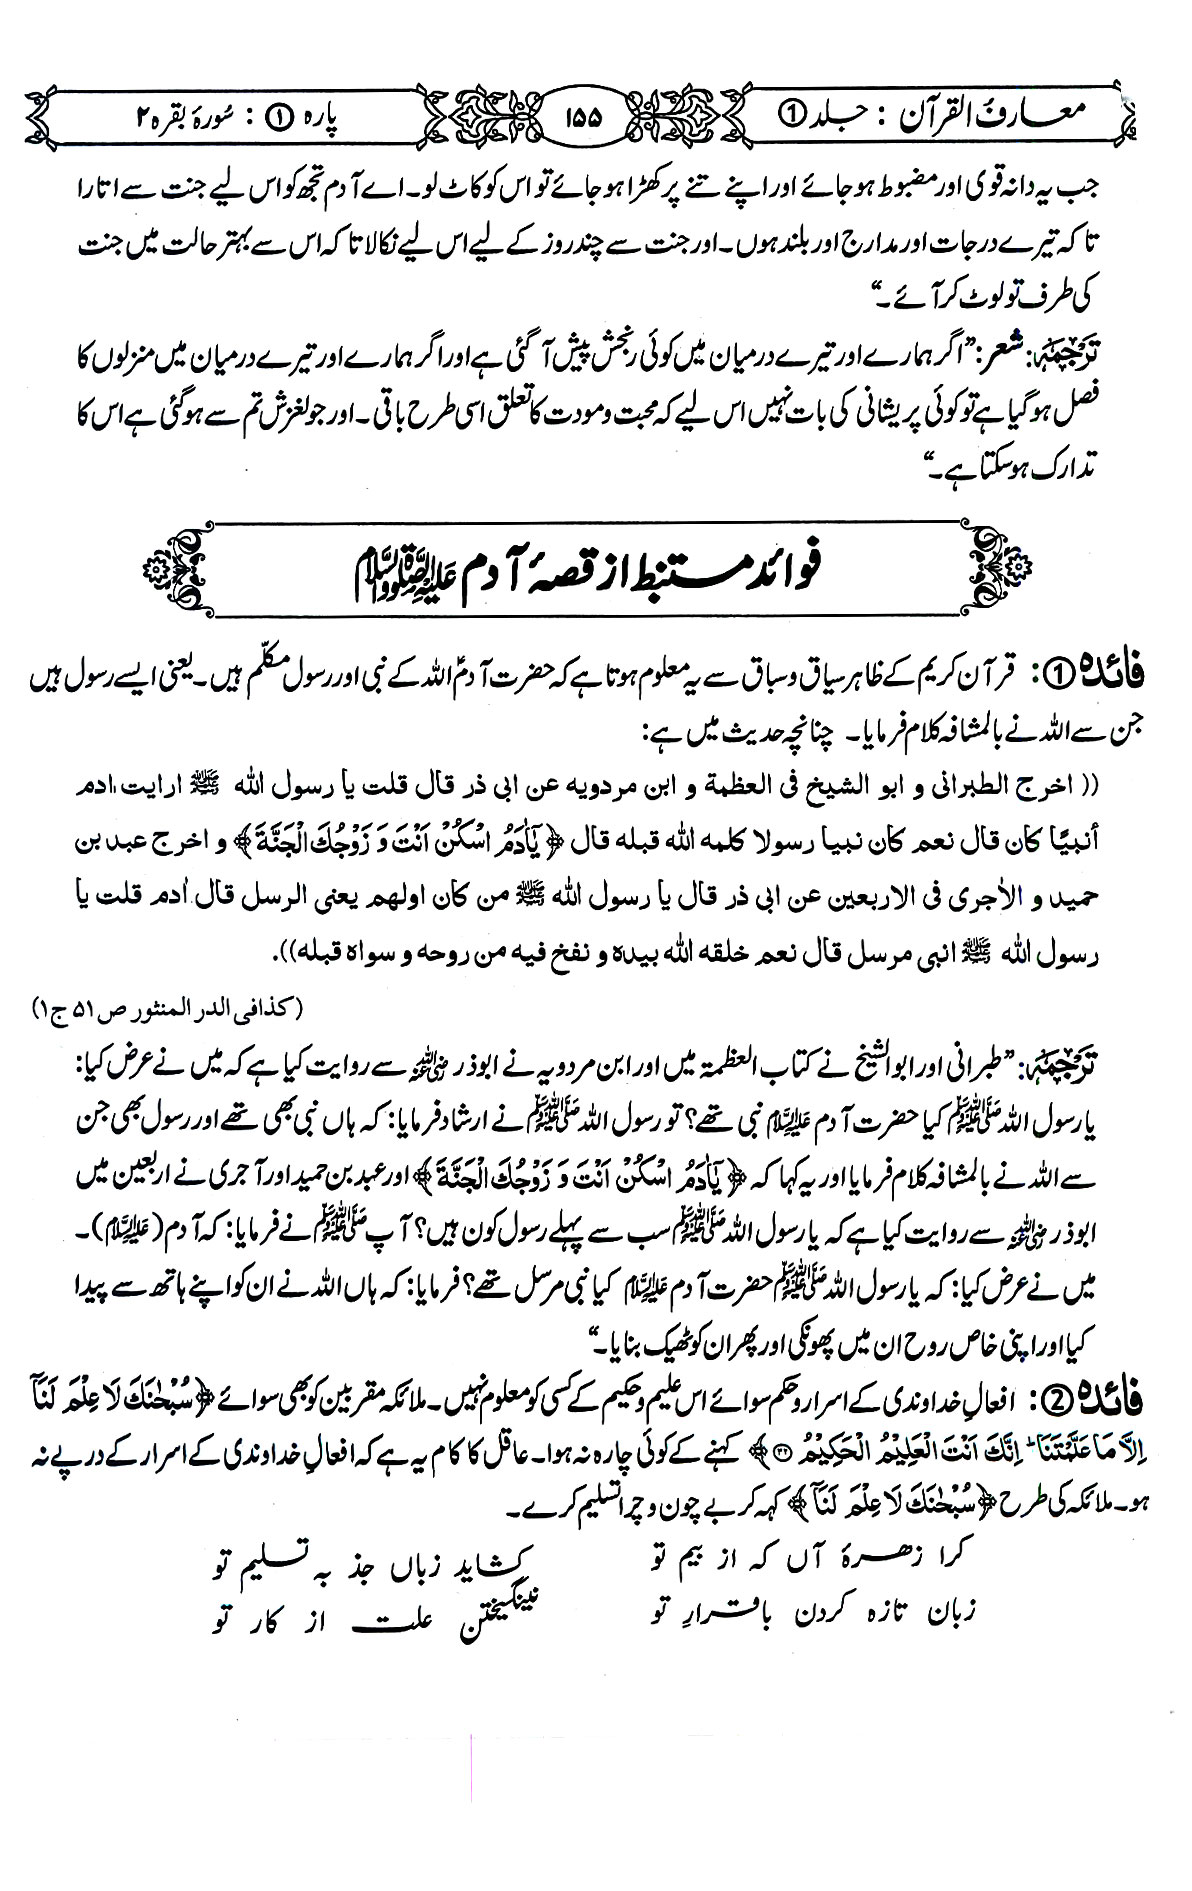 معارف القرآن : جلد ①
۱۵۵
پارہ ① : سُورۂ بقرہ ۲
جب یہ دانہ قوی اور مضبوط ہو جائے اور اپنے تنے پر کھڑا ہو جائے تو اس کو کاٹ لو۔ اے آدم تجھ کو اس لیے جنت سے اتارا
تاکہ تیرے درجات اور مدارج اور بلند ہوں۔ اور جنت سے چند روز کے لیے اس لیے نکالا تاکہ اس سے بہتر حالت میں جنت
کی طرف تو لوٹ کر آئے۔“
ترجمہ: شعر: ”اگر ہمارے اور تیرے درمیان میں کوئی رنجش پیش آ گئی ہے اور اگر ہمارے اور تیرے درمیان میں منزلوں کا
فصل ہو گیا ہے تو کوئی پریشانی کی بات نہیں اس لیے کہ محبت و مودت کا تعلق اسی طرح باقی۔ اور جو لغزش تم سے ہو گئی ہے اس کا
تدارک ہو سکتا ہے۔“
فوائد مستنبط از قصۂ آدم علیہ الصلوۃ والسلام
فائدہ ①: قرآن کریم کے ظاہر سیاق و سباق سے یہ معلوم ہوتا ہے کہ حضرت آدمؑ اللہ کے نبی اور رسول مکلَّم ہیں۔ یعنی ایسے رسول ہیں
جن سے اللہ نے بالمشافہ کلام فرمایا۔ چنانچہ حدیث میں ہے:
(( اخرج الطبرانی و ابو الشیخ فی العظمة و ابن مردویه عن ابی ذر قال قلت یا رسول الله ﷺ ارایت ادم
أنبیًا کان قال نعم کان نبیا رسولا کلمه الله قبله قال ﴿يٰٓاٰدَمُ اسْكُنْ اَنْتَ وَ زَوْجُكَ الْجَنَّةَ﴾ و اخرج عبد بن
حمید و الأجری فی الاربعین عن ابی ذر قال یا رسول الله ﷺ من کان اولهم یعنی الرسل قال ادم قلت یا
رسول الله ﷺ انبی مرسل قال نعم خلقه الله بیده و نفخ فیه من روحه و سواه قبله)).
(کذا فی الدر المنثور ص ۵۱ ج ۱)
ترجمہ: ”طبرانی اور ابو الشیخ نے کتاب العظمۃ میں اور ابن مردویہ نے ابوذر رضی اللہ عنہ سے روایت کیا ہے کہ میں نے عرض کیا:
یا رسول اللہ ﷺ کیا حضرت آدم علیہ السلام نبی تھے؟ تو رسول اللہ ﷺ نے ارشاد فرمایا: کہ ہاں نبی بھی تھے اور رسول بھی جن
سے اللہ نے بالمشافہ کلام فرمایا اور یہ کہا کہ ﴿يٰٓاٰدَمُ اسْكُنْ اَنْتَ وَ زَوْجُكَ الْجَنَّةَ﴾ اور عبد بن حمید اور آجری نے اربعین میں
ابوذر رضی اللہ عنہ سے روایت کیا ہے کہ یا رسول اللہ ﷺ سب سے پہلے رسول کون ہیں؟ آپ ﷺ نے فرمایا: کہ آدم (علیہ السلام)۔
میں نے عرض کیا: کہ یا رسول اللہ ﷺ حضرت آدم علیہ السلام کیا نبی مرسل تھے؟ فرمایا: کہ ہاں اللہ نے ان کو اپنے ہاتھ سے پیدا
کیا اور اپنی خاص روح ان میں پھونکی اور پھر ان کو ٹھیک بنایا۔“
فائدہ ②: افعالِ خداوندی کے اسرار و حکم سوائے اس علیم و حکیم کے کسی کو معلوم نہیں۔ ملائکہ مقربین کو بھی سوائے ﴿سُبْحٰنَكَ لَا عِلْمَ لَنَآ
اِلَّا مَا عَلَّمْتَنَا ؕ اِنَّكَ اَنْتَ الْعَلِيْمُ الْحَكِيْمُ ۝۳۲﴾ کہنے کے کوئی چارہ نہ ہوا۔ عاقل کا کام یہ ہے کہ افعالِ خداوندی کے اسرار کے درپے نہ
ہو۔ ملائکہ کی طرح ﴿سُبْحٰنَكَ لَا عِلْمَ لَنَآ﴾ کہہ کر بے چون و چرا تسلیم کرے۔
کرا زھرۂ آں کہ از بیم تو کشاید زباں جذ بہ تسلیم تو
زبان تازہ کردن باقرارِ تو نینگیختن علت از کار تو